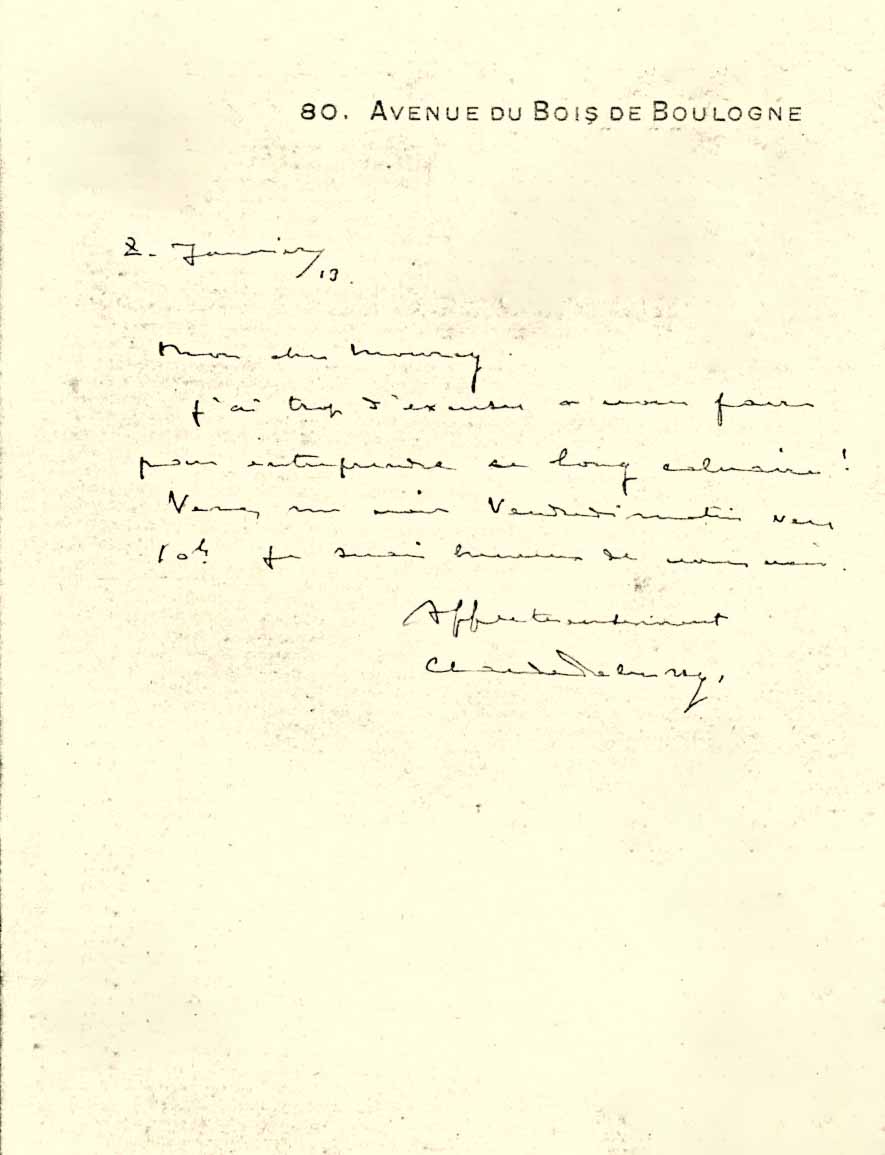 80. AVENUE DU BOIS DE BOULOGNE
2. Janvier/13.
Mon cher Mourey.
J'ai trop d'excuses a vous faire
pour entreprendre ce long calvaire!
Venez me voir Vendredi matin vers
10h. Je serais heureux de vous voir.
Affectueusement
Claude Debussy.